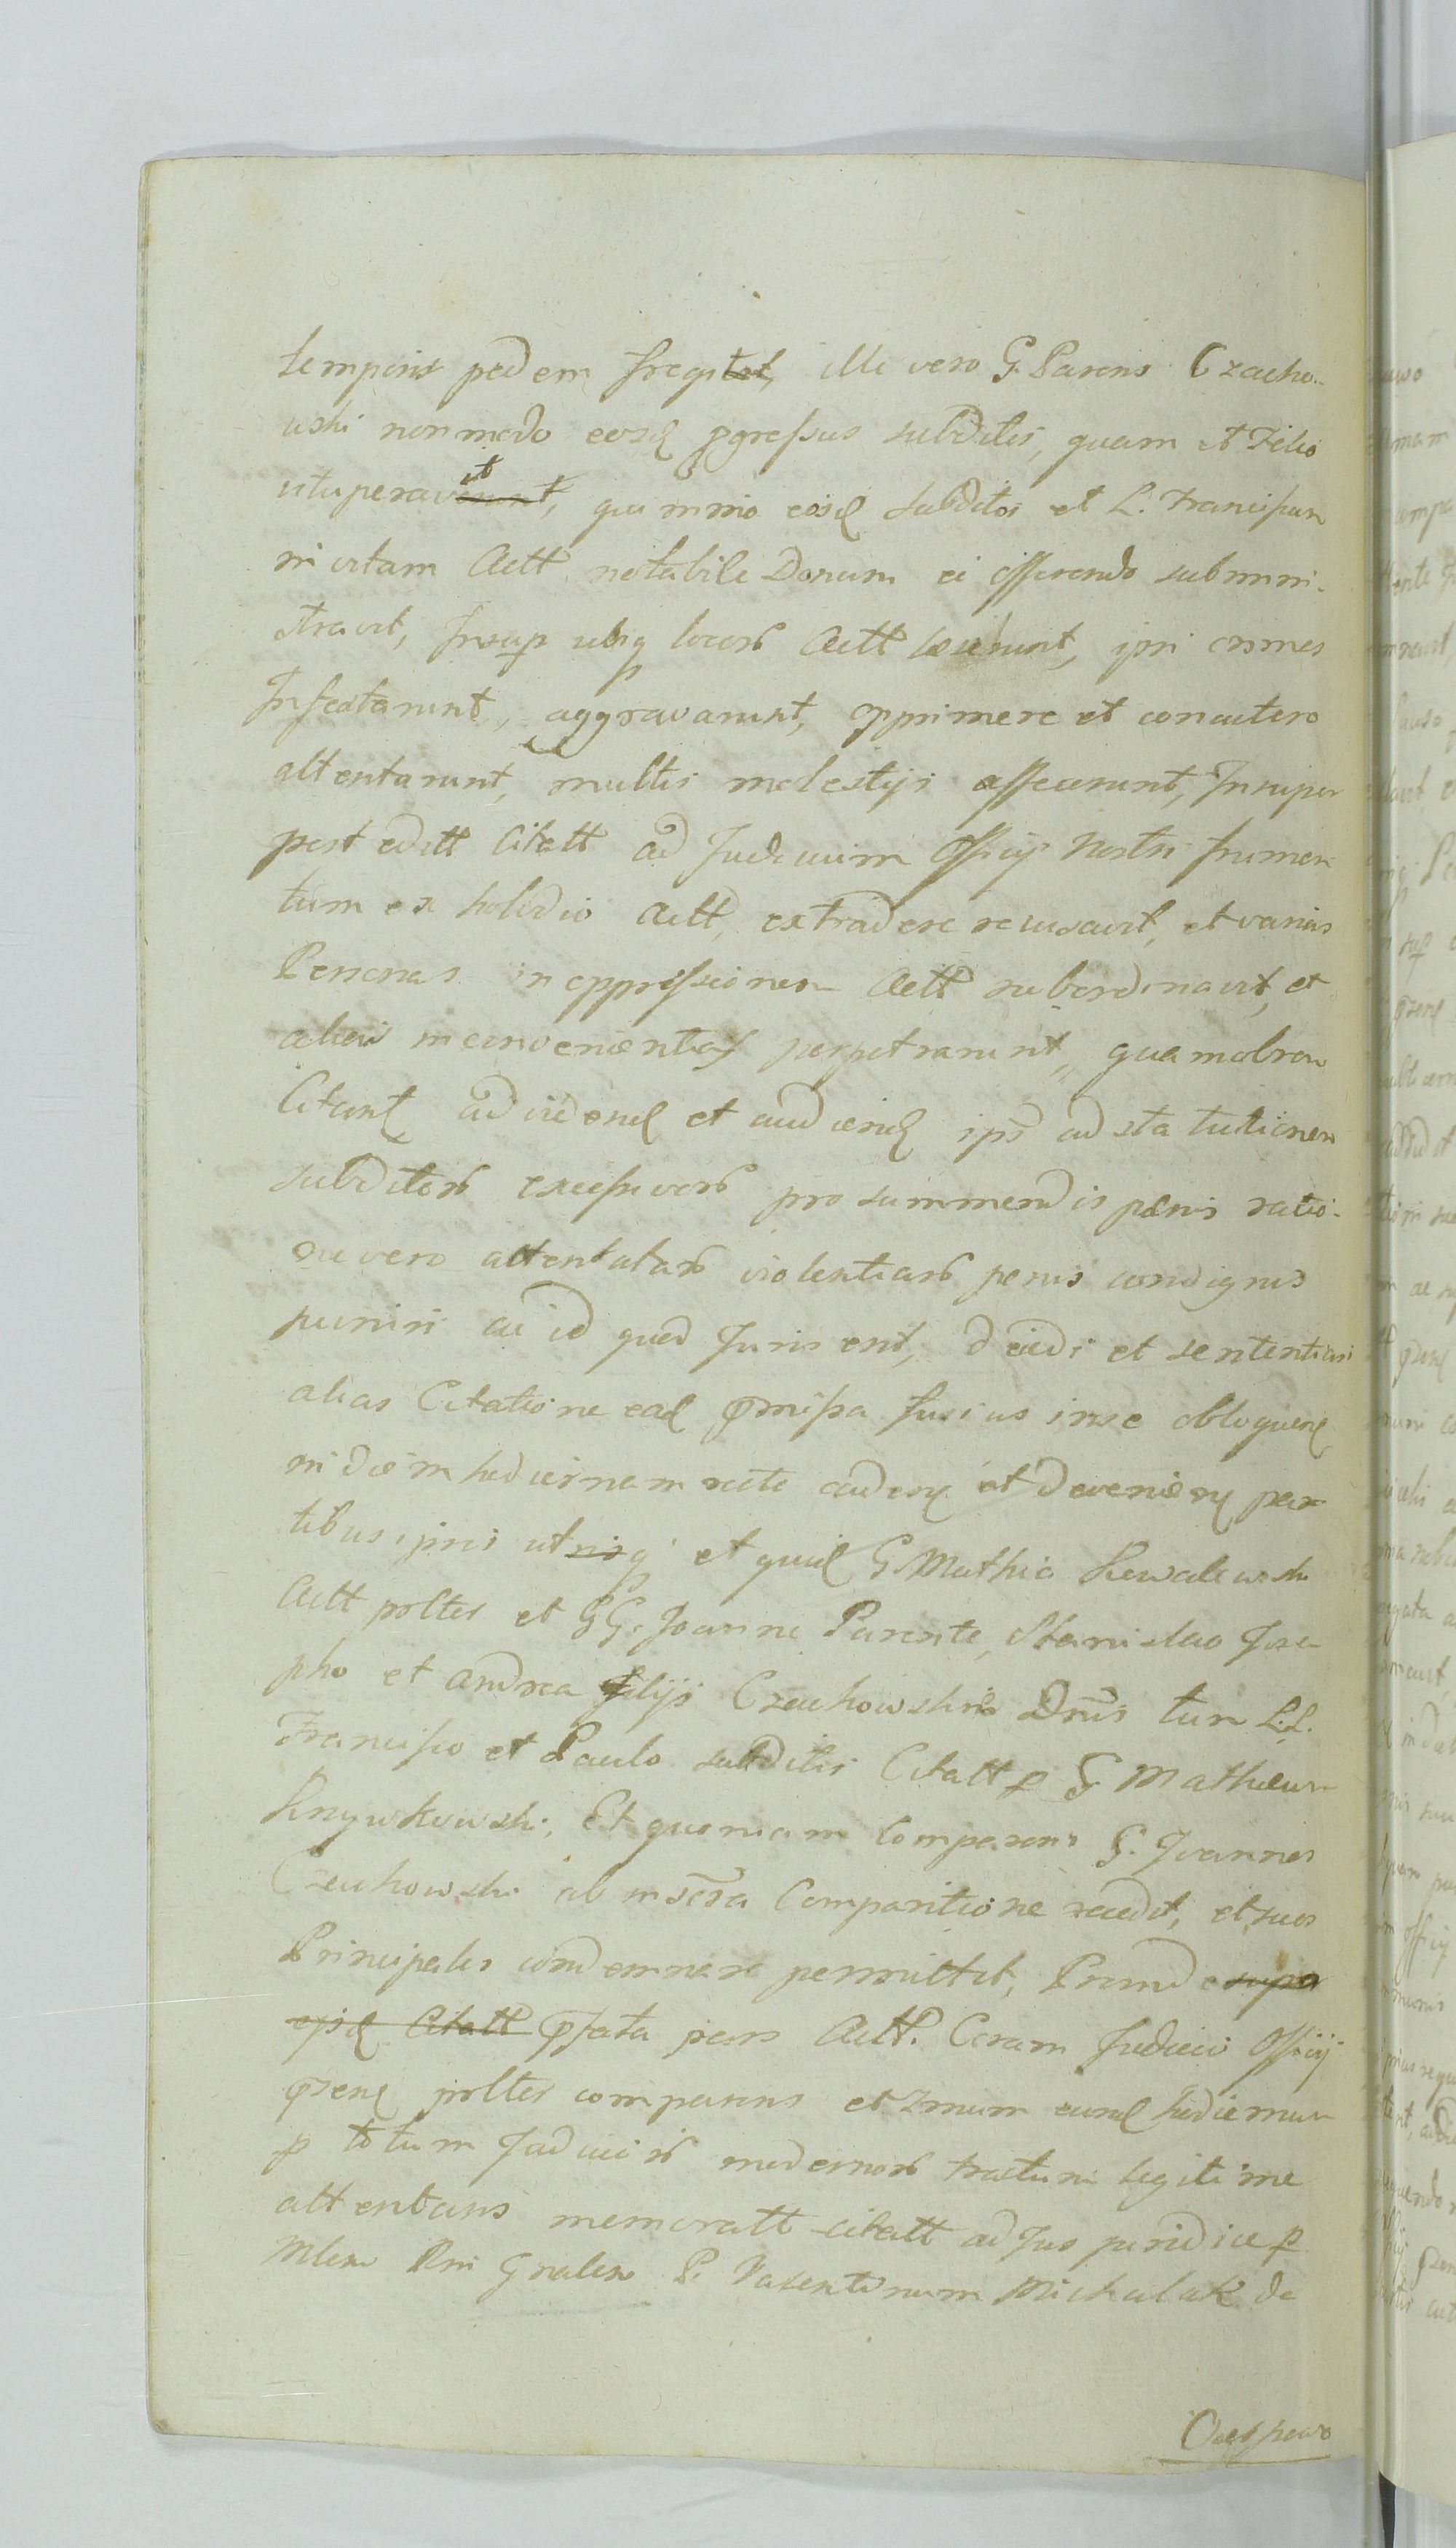 temporis pedem fregit, ille vero G. Parens Czacho-
wski non modo eosd pgressus subditis, quam et Filio
vituperavit, quinimo eosd subditos et L. Franciscum
in vitam Actt notabile Donum ei offerendo submini-
stravit, Insup ubiq locorb Actt, ipsi omnes
Infestarunt, aggravarunt, opprimere et concutere
attentarunt, multis molestijs affecerunt, Insuper
post editt Citatt ad Judicium Officij Nostri frumen
tum ex Actt, extradere recusavit, et varias
Personas in oppressionem Actt subordinavit, et
alia inconvenientias perpetrarunt, quamobrem
Citant ad videnđ et audienđ ipsđ ad statutionem
subditorb excessivorb pro summendis pænis ratio-
ne vero attentatarb violentiarb penis condignis
puniri ac id quod Juris erit, decidi et sententiari
alias Citatione eađ pmissa fusius in se obloquenđ
in diem hodiernam recte cadenđ et devenienđ par
tibus ipsis utrisq et quiđ G. Mathia Kowalewski
Actt psltter et GG. Joanne Parente, Stanislao Jose
pho et Andrea filijs Czachowskirb Dnis tum L.L.
Francisco et Paulo subditis Citatt p G. Mathæum
Krzywkowski, Et quoniam Comparens G. Joannes
Czachowski ab inscra Comparitione recedit, et suos
Principales condemnare permittit, Proinde supra
ejsđ Citatt pfata pars Actt. Coram Judicio Officij
psenđ psltter comparens et Tmum eunđ hodiernum
p totum Judiciorb modernorb tractum legitime
attentans memoratt citatt ad Jus juridice p
Mlem Rni Gnalem P. Valentinum Michalak de